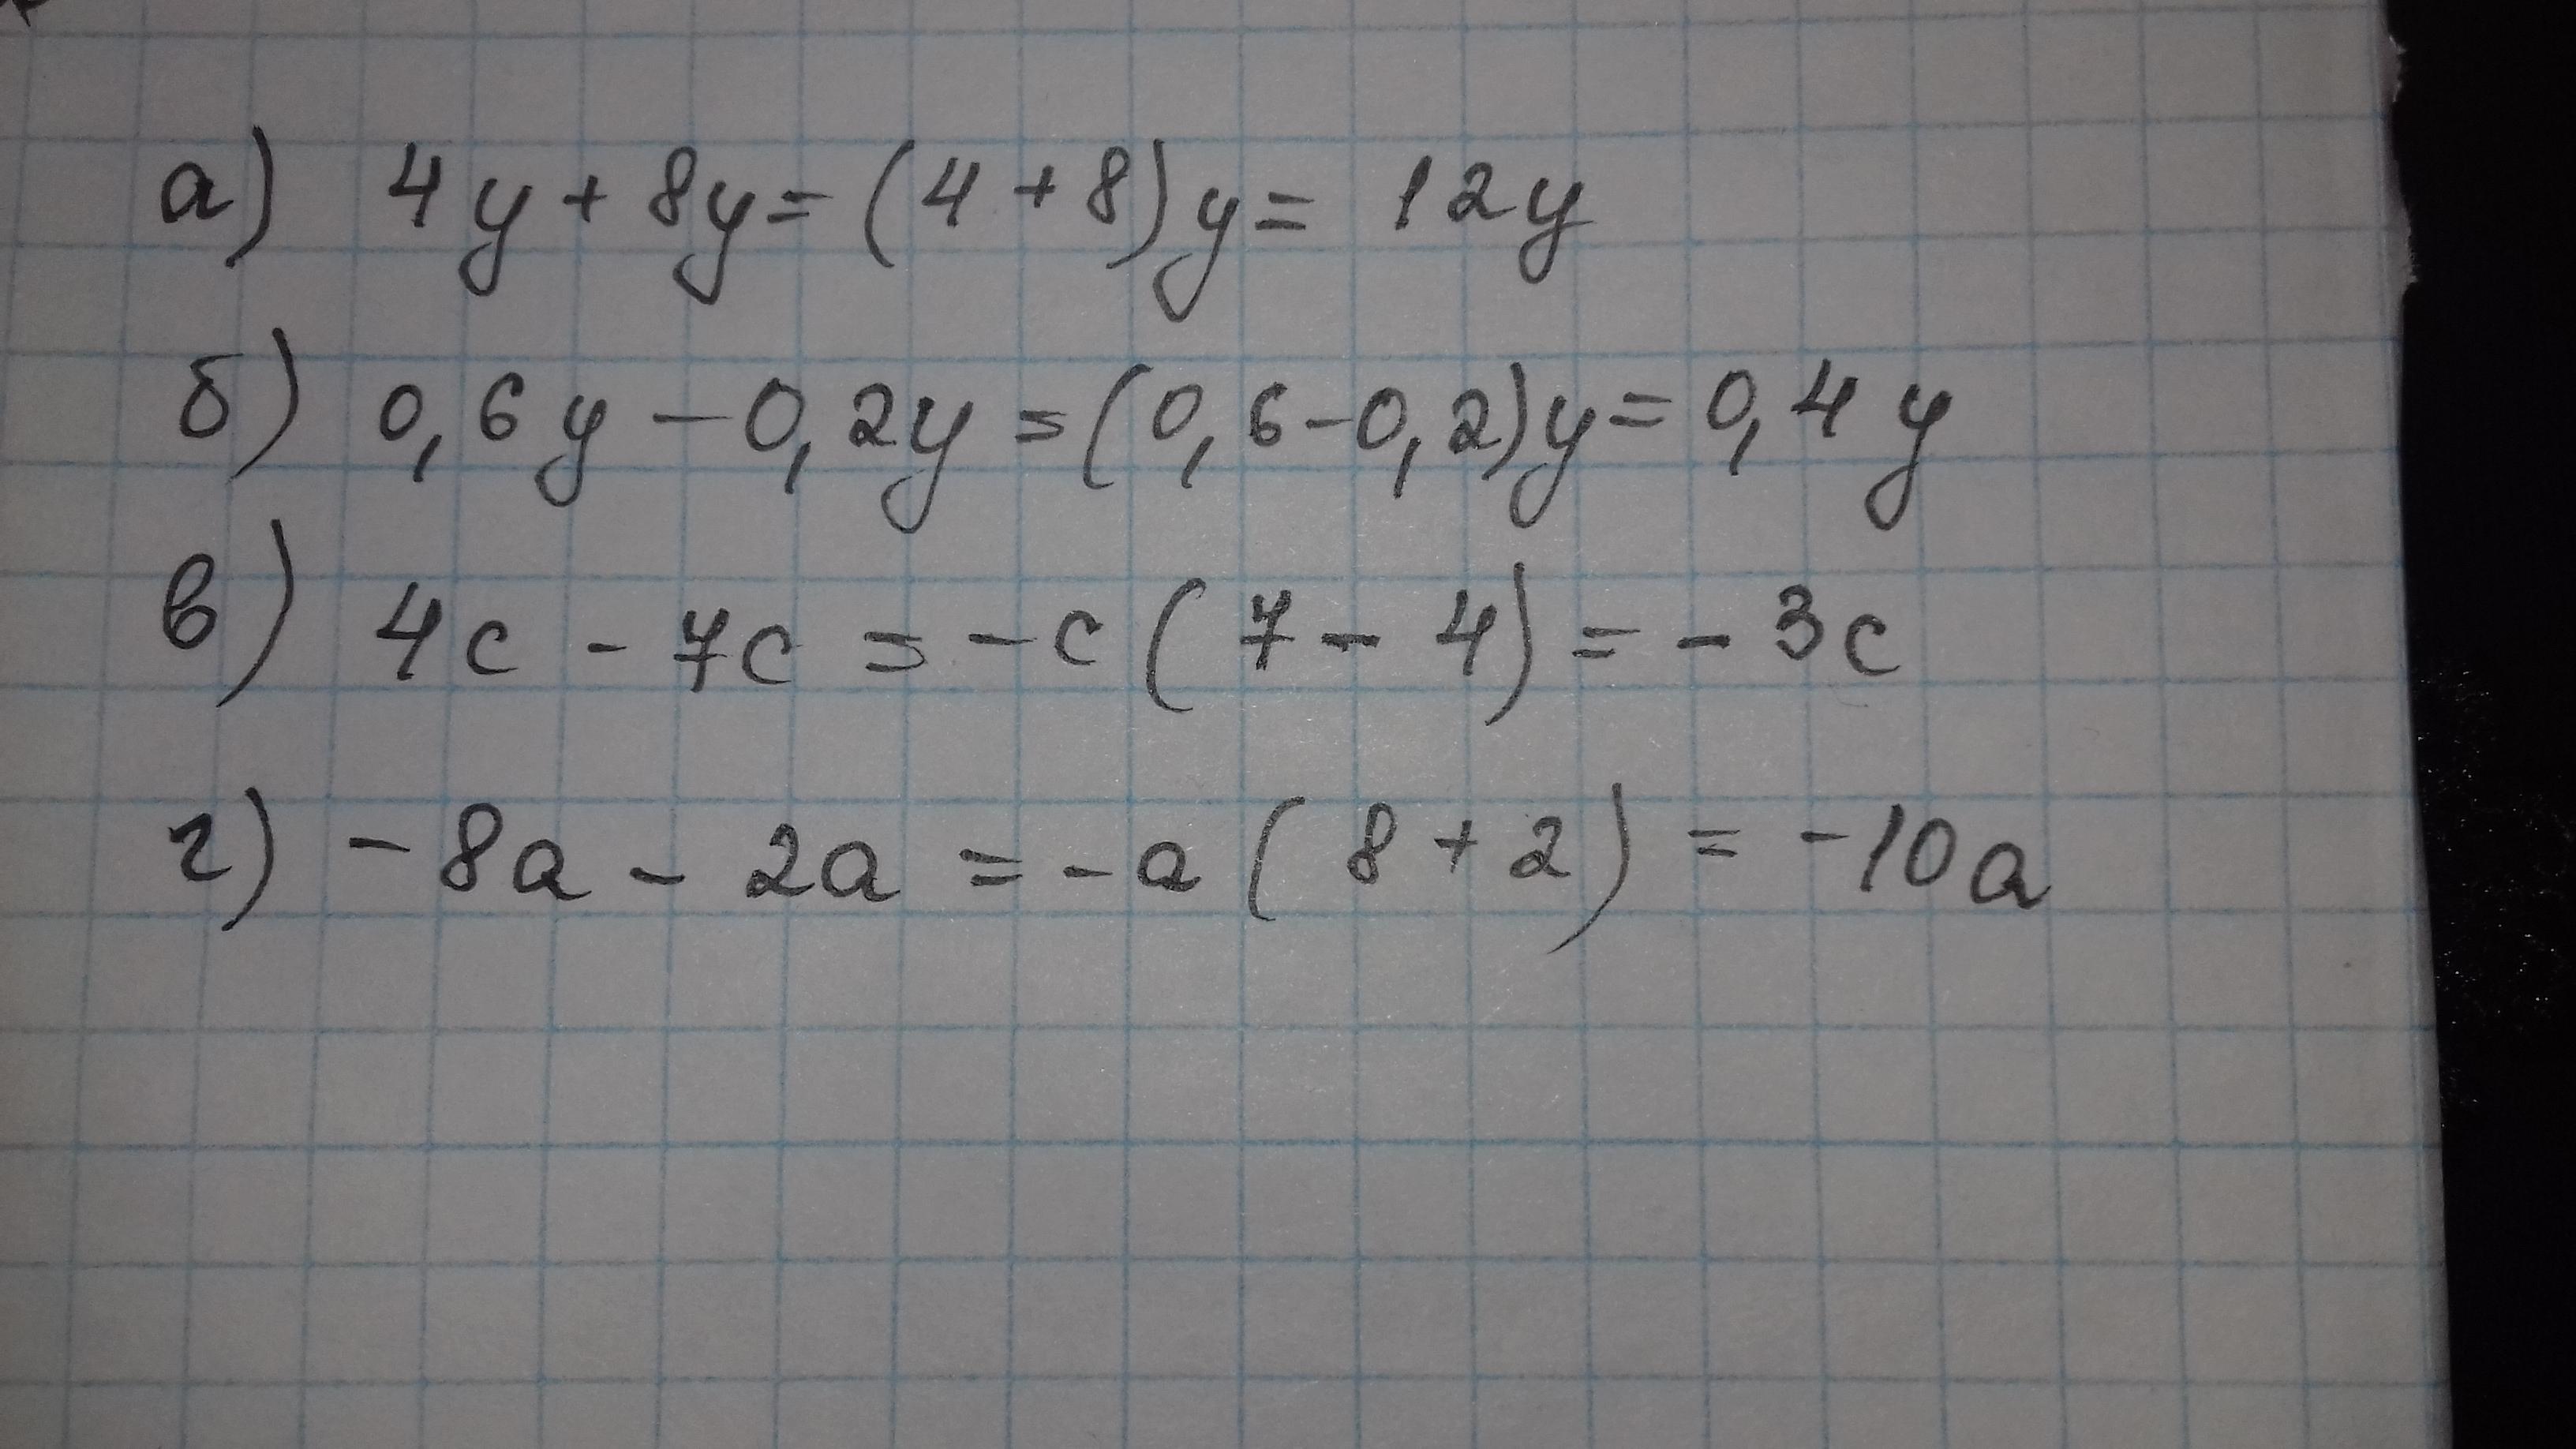 а) 4y + 8y = (4 + 8)y = 12y
б) 0,6y - 0,2y = (0,6 - 0,2)y = 0,4y
в) 4c - 7c = - c (7 - 4) = - 3c
г) - 8a - 2a = - a (8 + 2) = - 10a